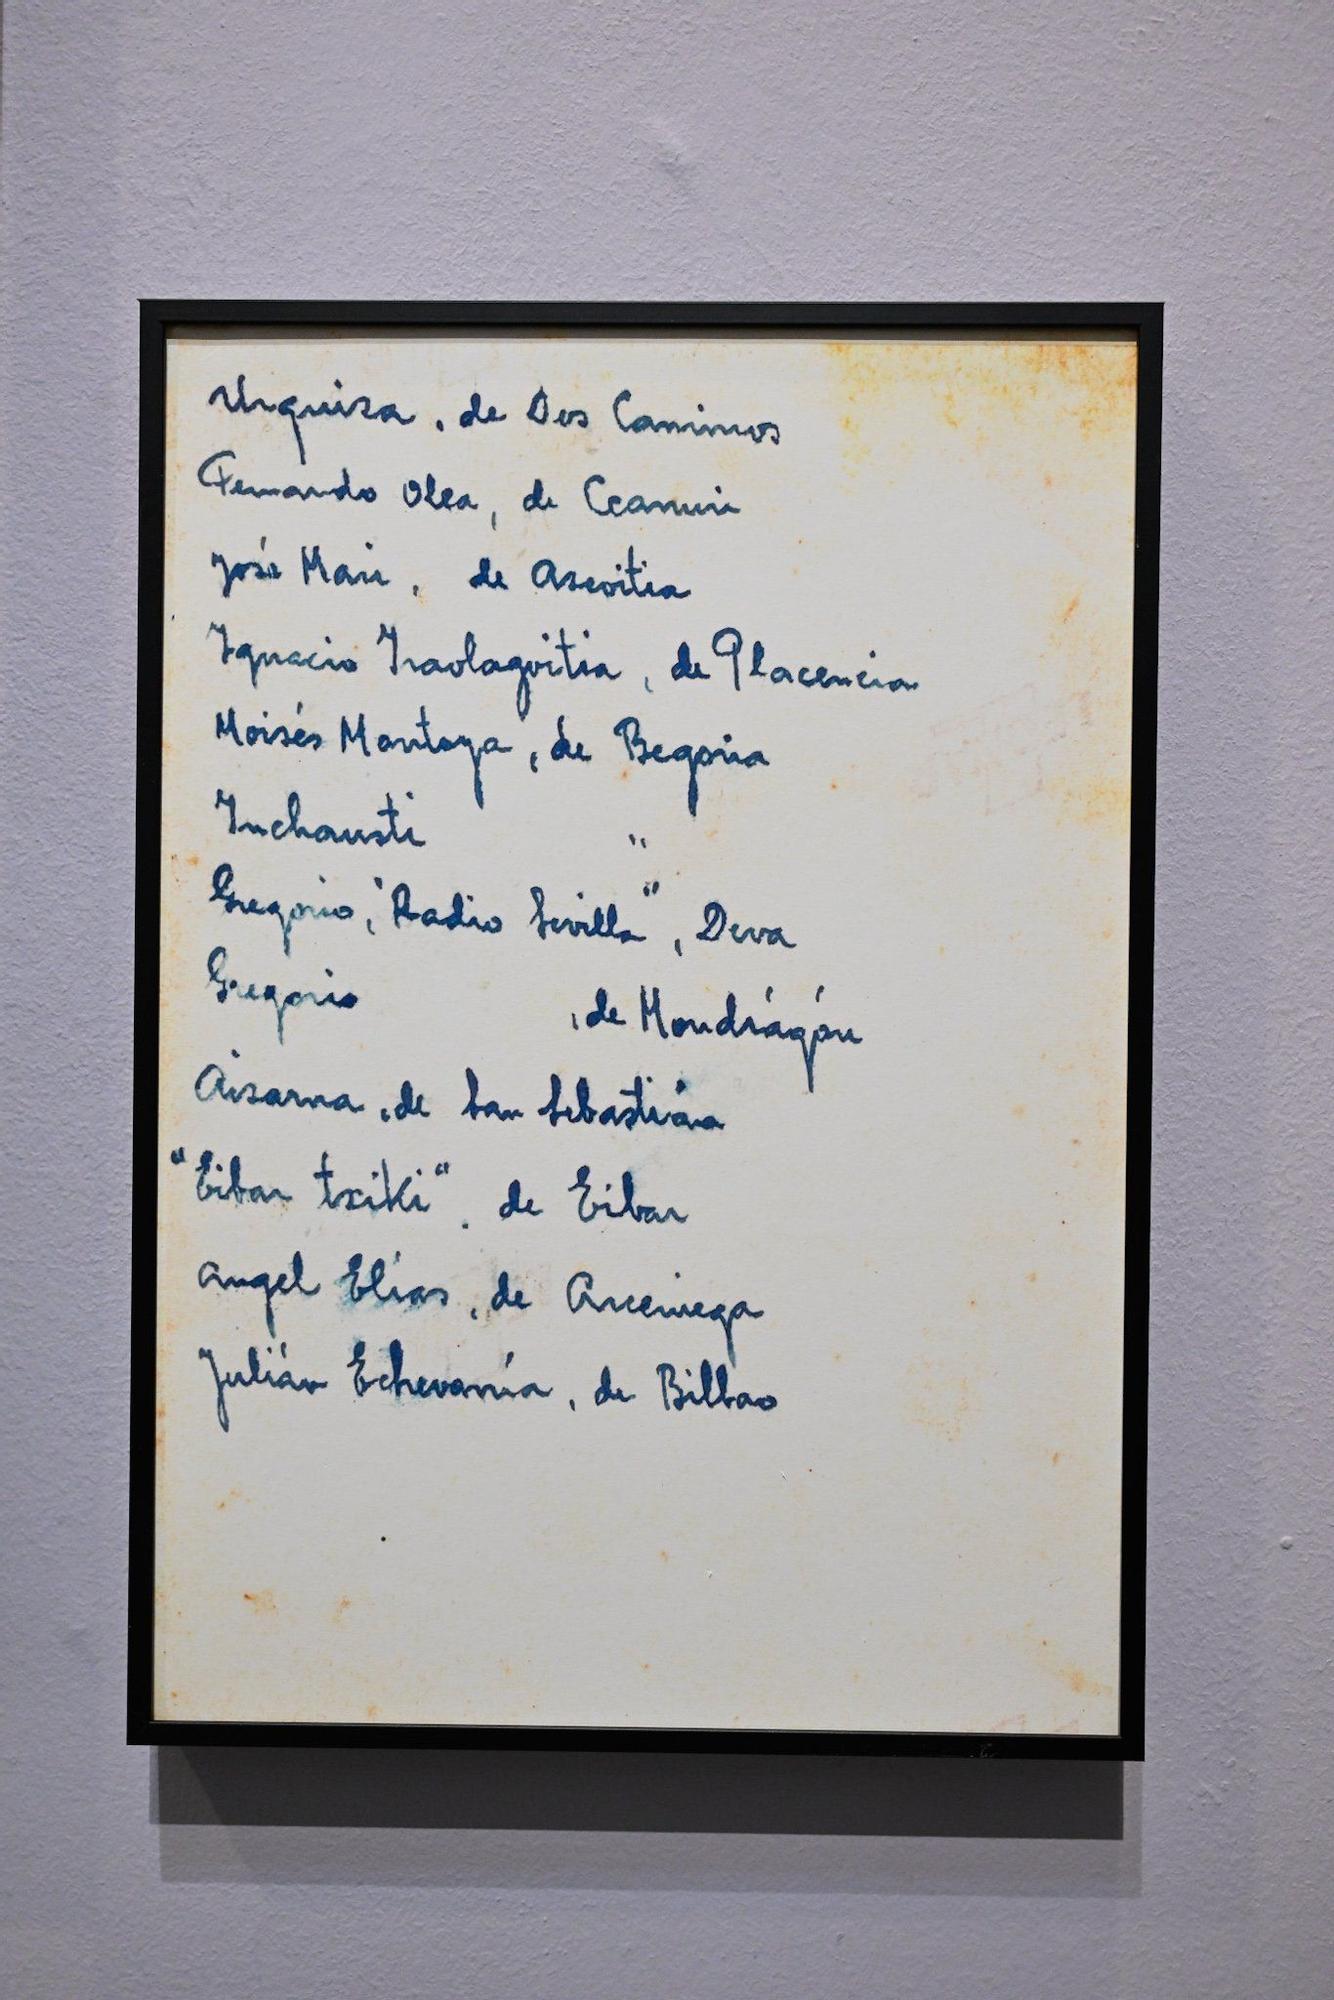 Urquiza, de Dos Caminos
Fernando Olea, de Ceanuri
José Mari, de Azcoitia
Ignacio Iraolagoitia, de Placencia
Moisés Montoya, de Begoña
Inchausti "
Gregorio, "Radio Sevilla", Deva
Gregorio , de Mondrágón
Aizarna, de San Sebastián
"Eibar txiki", de Eibar
Angel Elías, de Arceniega
Julián Echevarría, de Bilbao